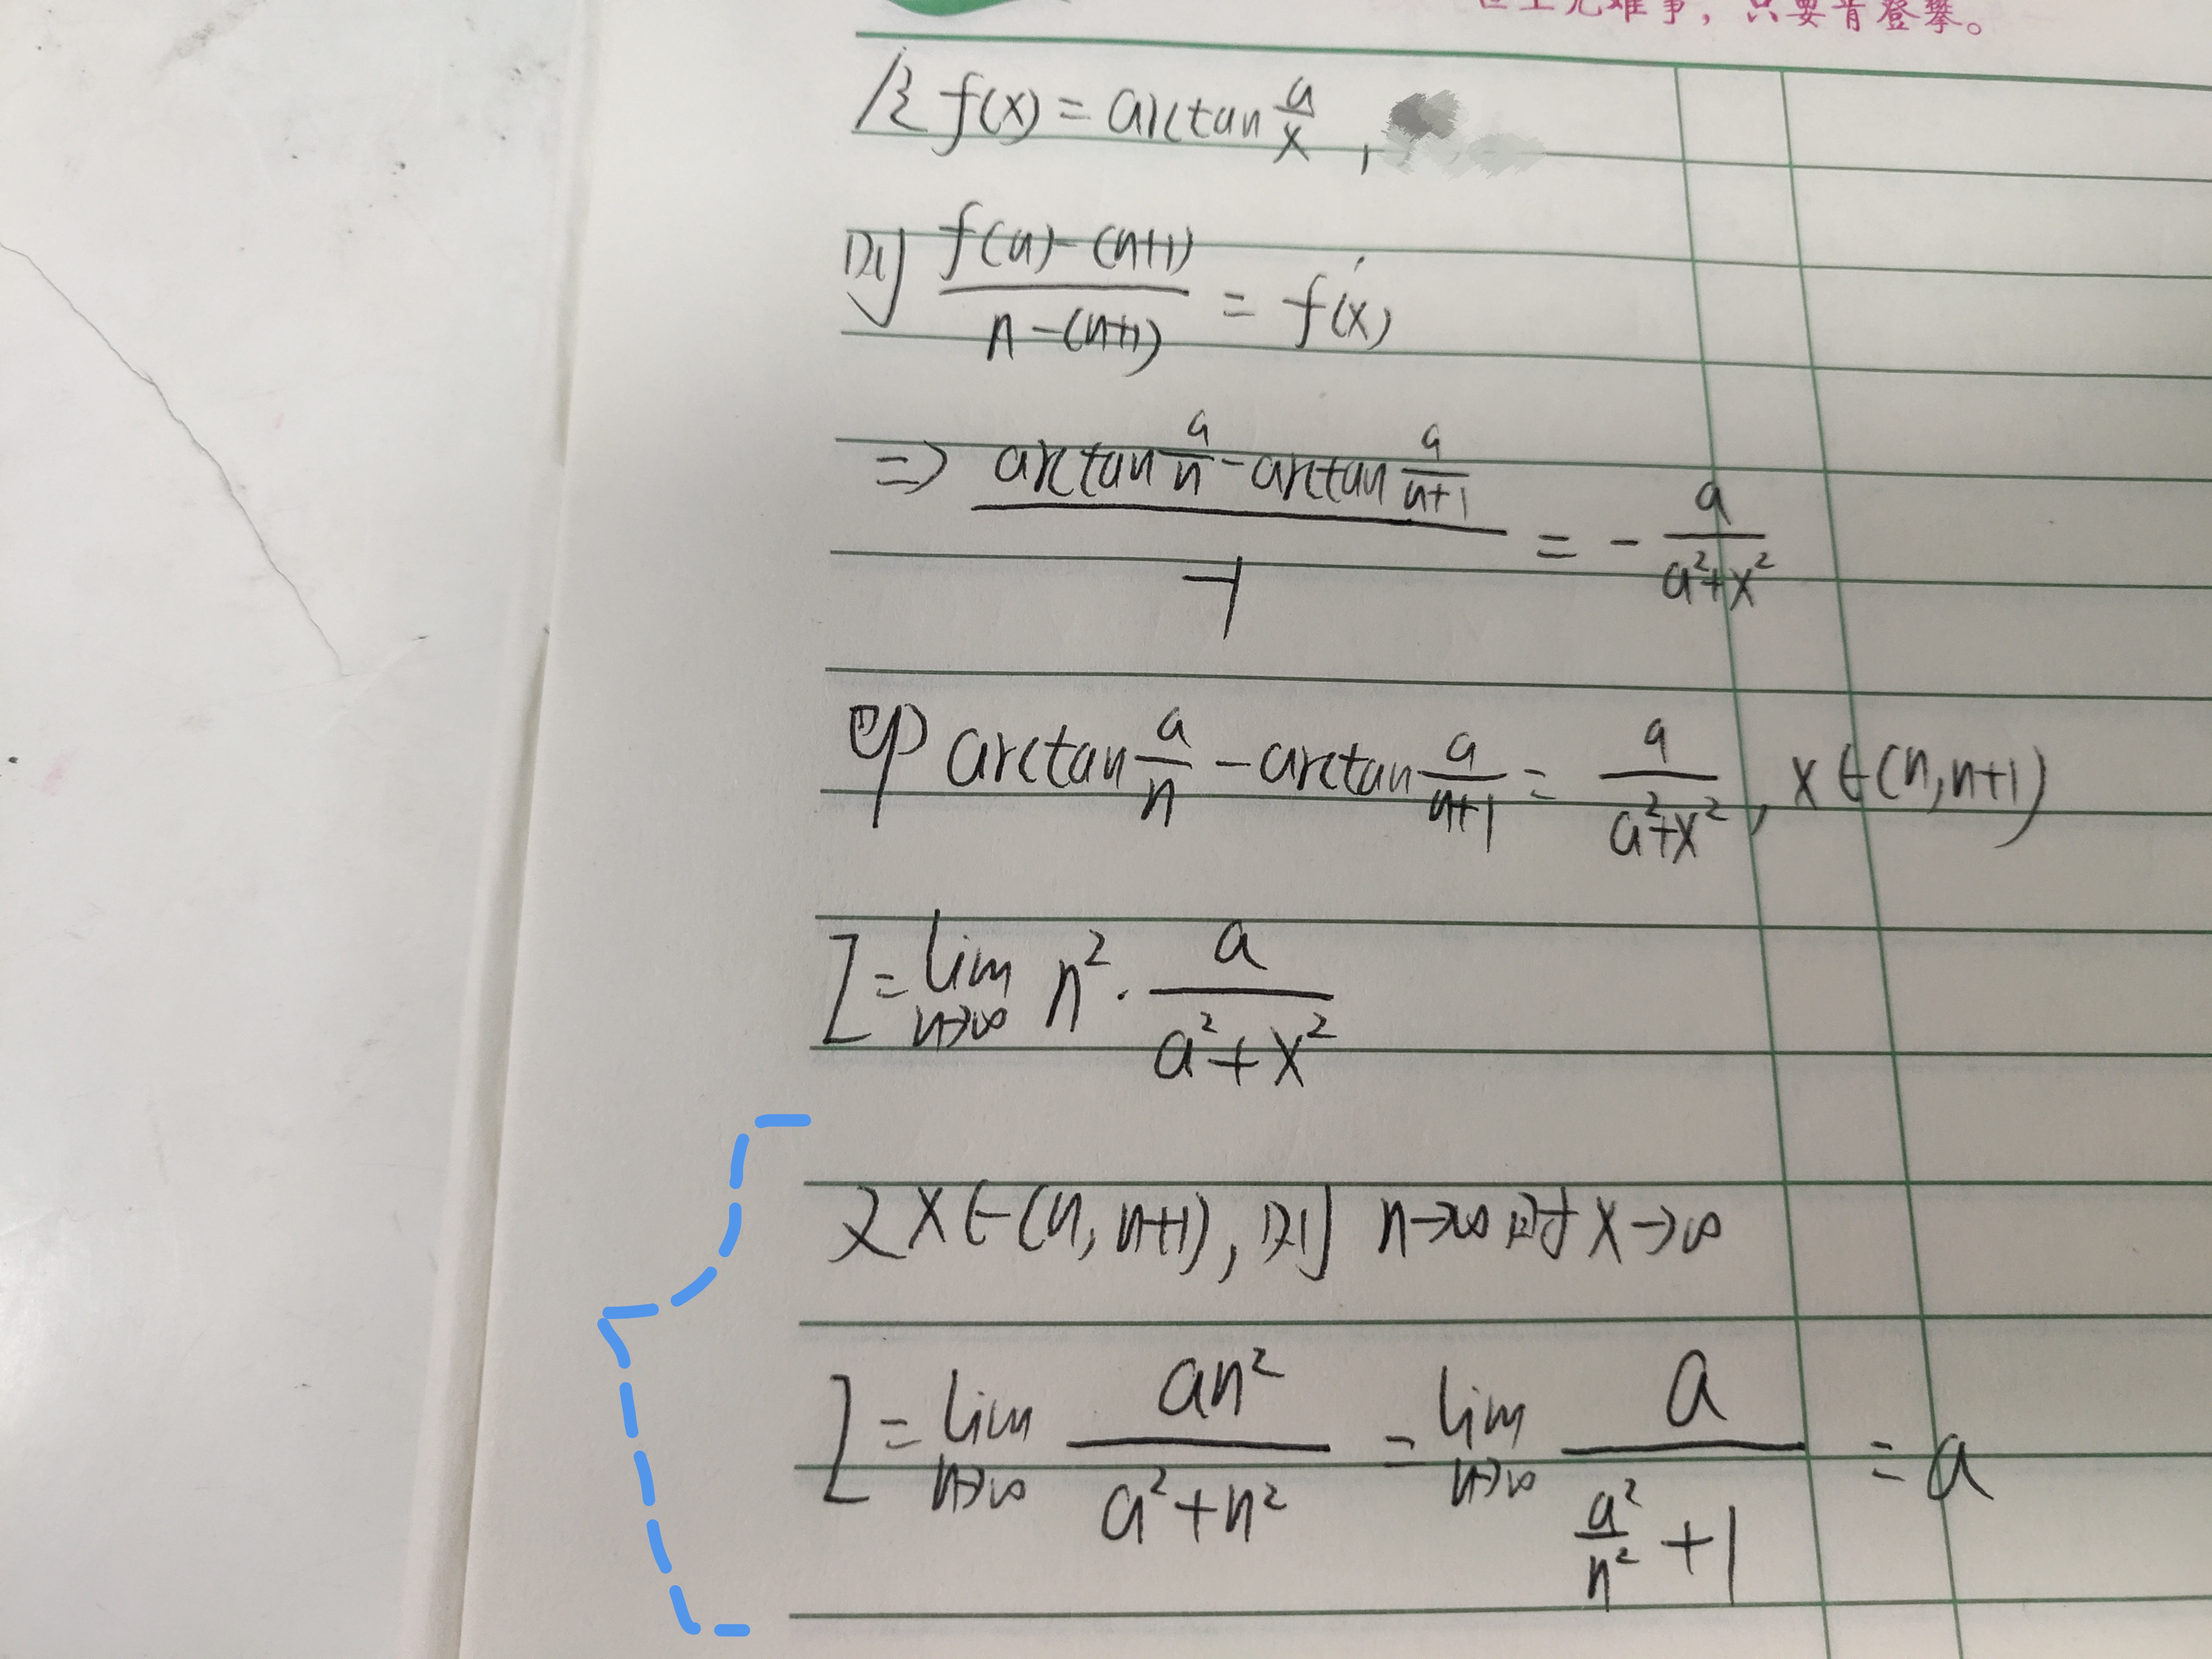 世上无难事，只要肯登攀。
设 f(x) = arctan a/x ,
则 f(n)-(n+1) / n-(n+1) = f'(x)
=> arctan a/n - arctan a/n+1 / -1 = - a/a²+x²
即 arctan a/n - arctan a/n+1 = a/a²+x² , x∈(n,n+1)
I = lim n→∞ n² · a/a²+x²
又 x∈(n,n+1), 则 n→∞时 x→∞
I = lim n→∞ an²/a²+n² = lim n→∞ a / a²/n² +1 = a